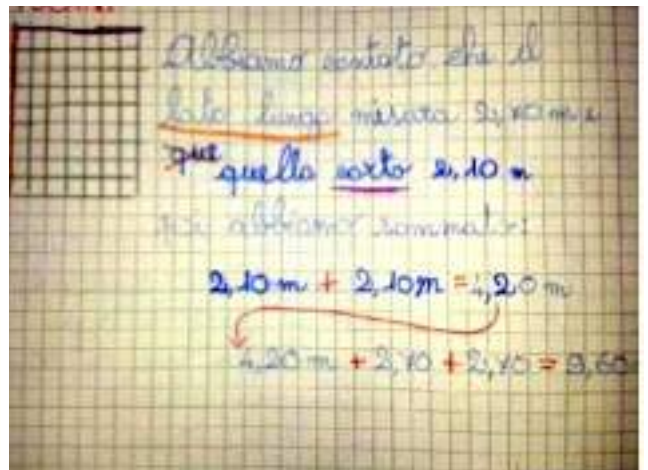 Abbiamo contato che il
lato lungo misura 2,70 m e
que quello corto 2,10 m
poi abbiamo sommato:
2,10 m + 2,10 m = 4,20 m
4,20 m + 2,70 + 2,70 = 9,60